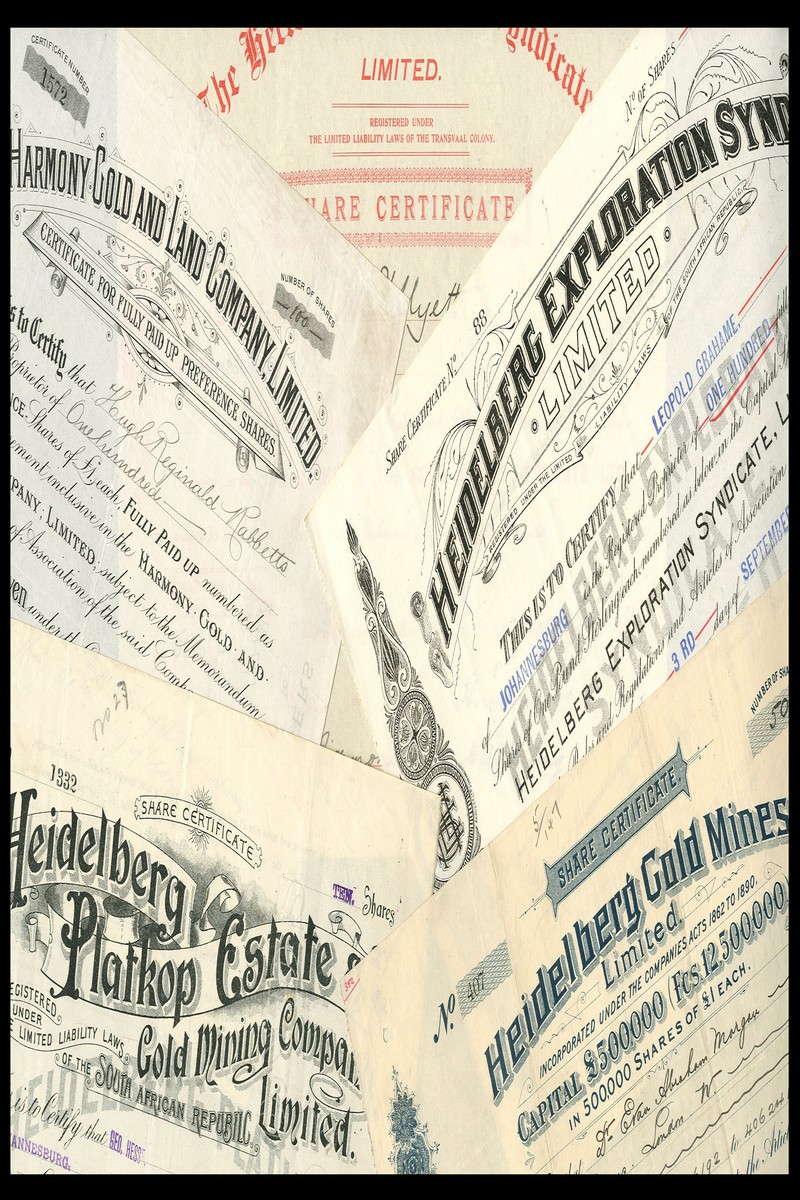 CERTIFICATE NUMBER
1572
HARMONY GOLD AND LAND COMPANY, LIMITED
CERTIFICATE FOR FULLY PAID UP PREFERENCE SHARES
NUMBER OF SHARES
100
s to Certify that Hugh Reginald Rabbetts
Proprietor of One hundred
NCE Shares of £1 each, FULLY PAID UP numbered as
ement inclusive in the HARMONY GOLD AND
PANY, LIMITED, subject to the Memorandum
of Association of the said Comp
ven under th
The
Syndicate
LIMITED.
REGISTERED UNDER
THE LIMITED LIABILITY LAWS OF THE TRANSVAAL COLONY.
SHARE CERTIFICATE
No OF SHARES
SHARE CERTIFICATE No 88
HEIDELBERG EXPLORATION SYND
LIMITED
REGISTERED UNDER THE LIMITED LIABILITY LAWS OF THE SOUTH AFRICAN REPUBLIC
THIS IS TO CERTIFY that LEOPOLD GRAHAME,
of JOHANNESBURG is the Registered Proprietor of ONE HUNDRED
Shares of One Pound Sterling each, numbered as below, in the Capital
HEIDELBERG EXPLORATION SYNDICATE, L
Rules and Regulations and Articles of Association
3 RD day of SEPTEMBER
No 27
1332
SHARE CERTIFICATE
TEN. Shares
Heidelberg
Platkop Estate &
Gold Mining Compan
Limited.
REGISTERED
UNDER
LIMITED LIABILITY LAWS
OF THE SOUTH AFRICAN REPUBLIC
is to Certify that GEO. HESS
ANNESBURG.
NUMBER OF SHA
50
SHARE CERTIFICATE.
No 407
Heidelberg Gold Mines
Limited.
INCORPORATED UNDER THE COMPANIES ACTS 1862 TO 1890.
CAPITAL £500000 (Fcs. 12,500000)
IN 500,000 SHARES OF £1 EACH.
Dr Evan Abraham Morgan
London W.
to 406241
the Artic